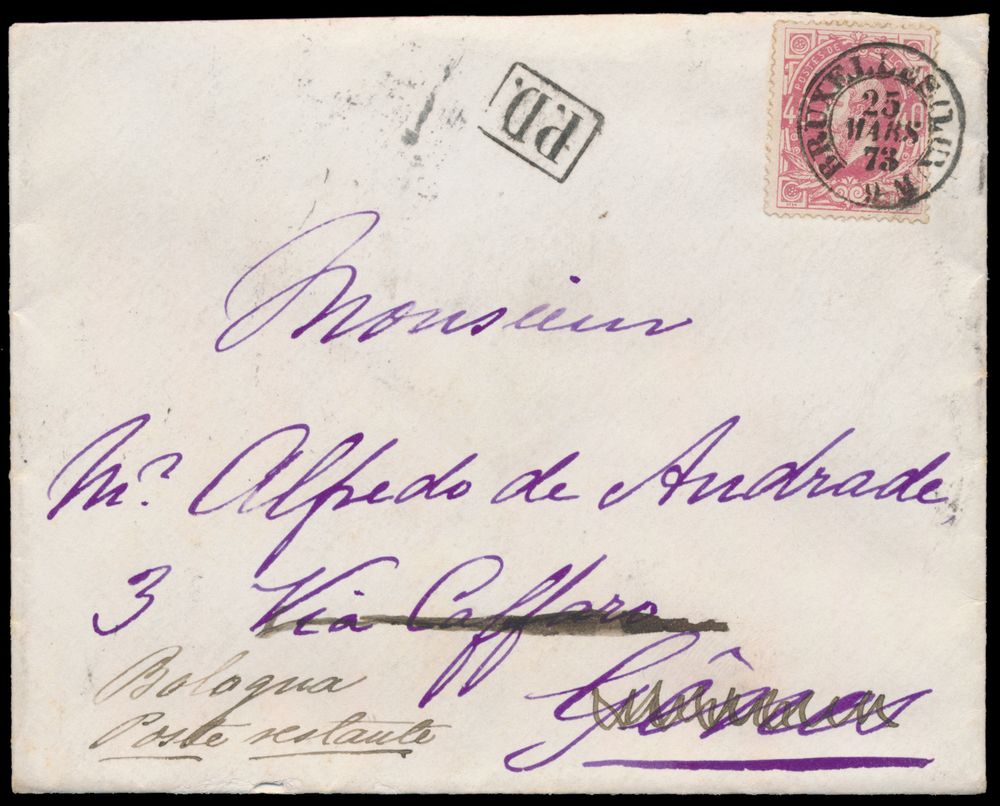 P.D.
POSTES DE
40
BRUXELLES (LUX
25
MARS
73
Monsieur
Mr. Alfredo de Andrade,
3 Via Caffaro
Gênes
Bologna
Poste restante